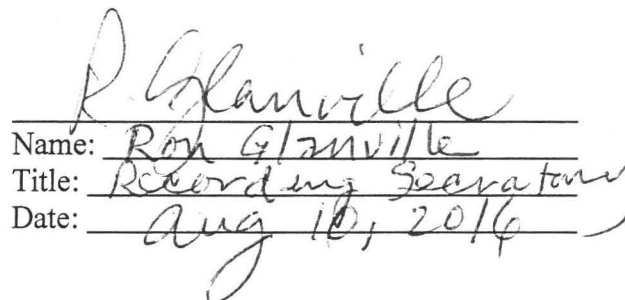 R. Glanville
Name: Ron Glanville
Title: Recording Secratary
Date: Aug 10, 2016